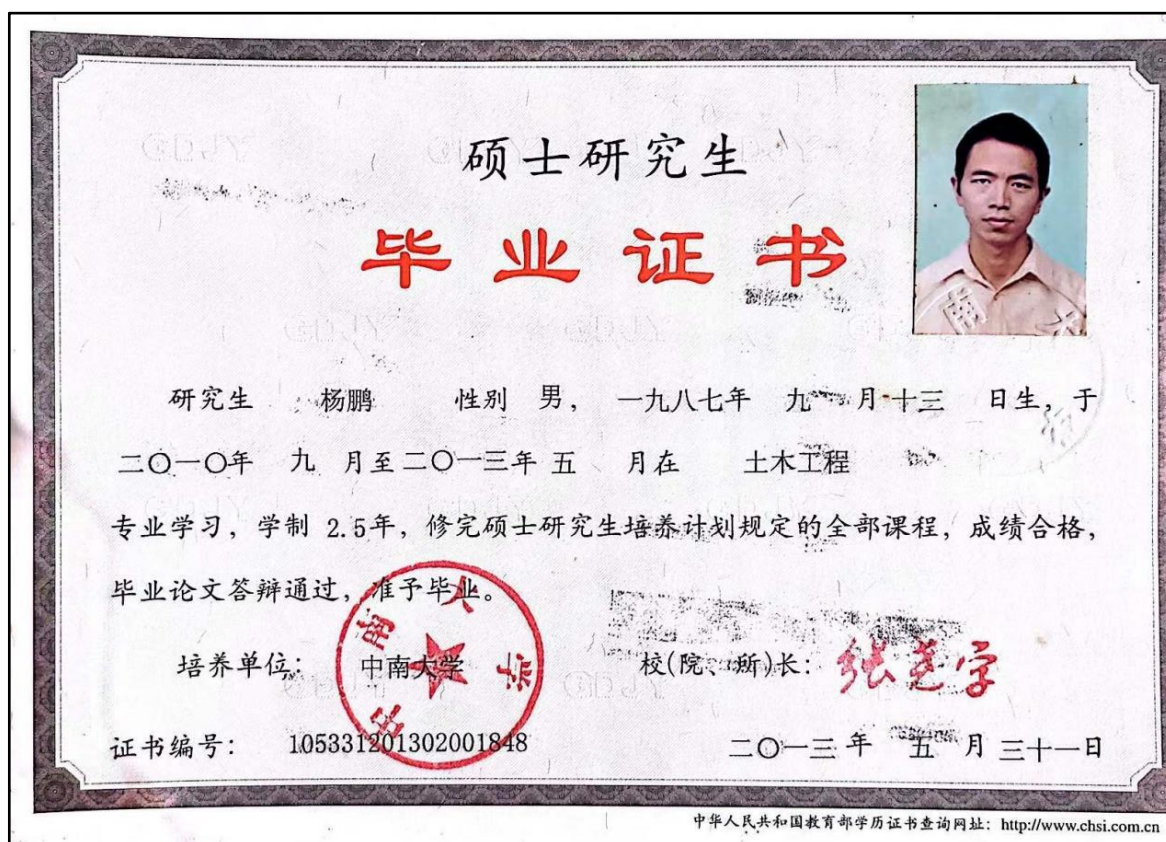 硕士研究生
毕业证书
研究生 杨鹏 性别 男， 一九八七年 九 月 十三 日生，于
二〇一〇年 九 月至二〇一三年 五 月在 土木工程
专业学习，学制 2.5年，修完硕士研究生培养计划规定的全部课程，成绩合格，
毕业论文答辩通过，准予毕业。
培养单位： 中南大学 校(院、所)长： 张尧学
中南大学
证书编号： 105331201302001848 二〇一三 年 五 月 三十一日
中华人民共和国教育部学历证书查询网址：http://www.chsi.com.cn